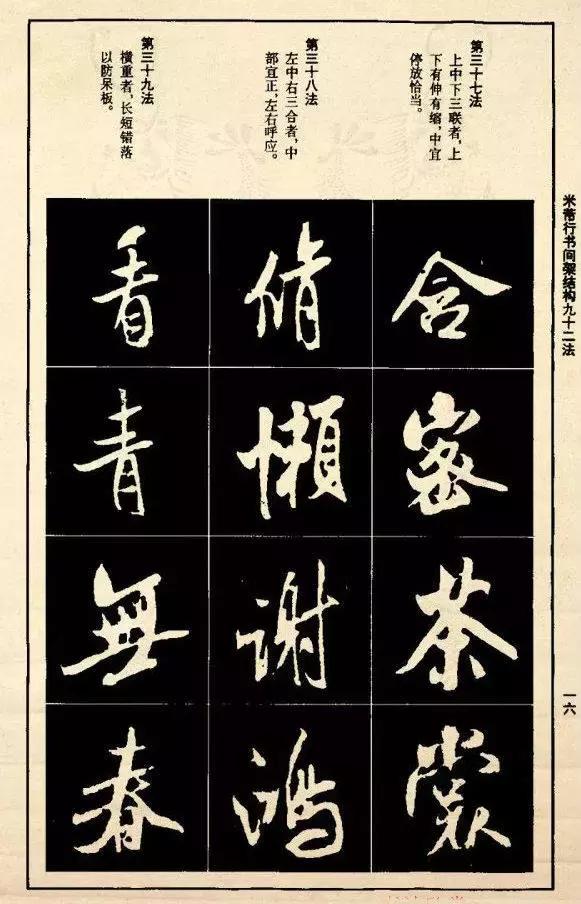 米芾行书间架结构九十二法
一六
第三十七法
上中下三联者，上
下有伸有缩，中宜
停放恰当。
含
密
茶
裳
第三十八法
左中右三合者，中
部宜正，左右呼应。
脩
懶
謝
鴻
第三十九法
横重者，长短错落
以防呆板。
看
青
無
春